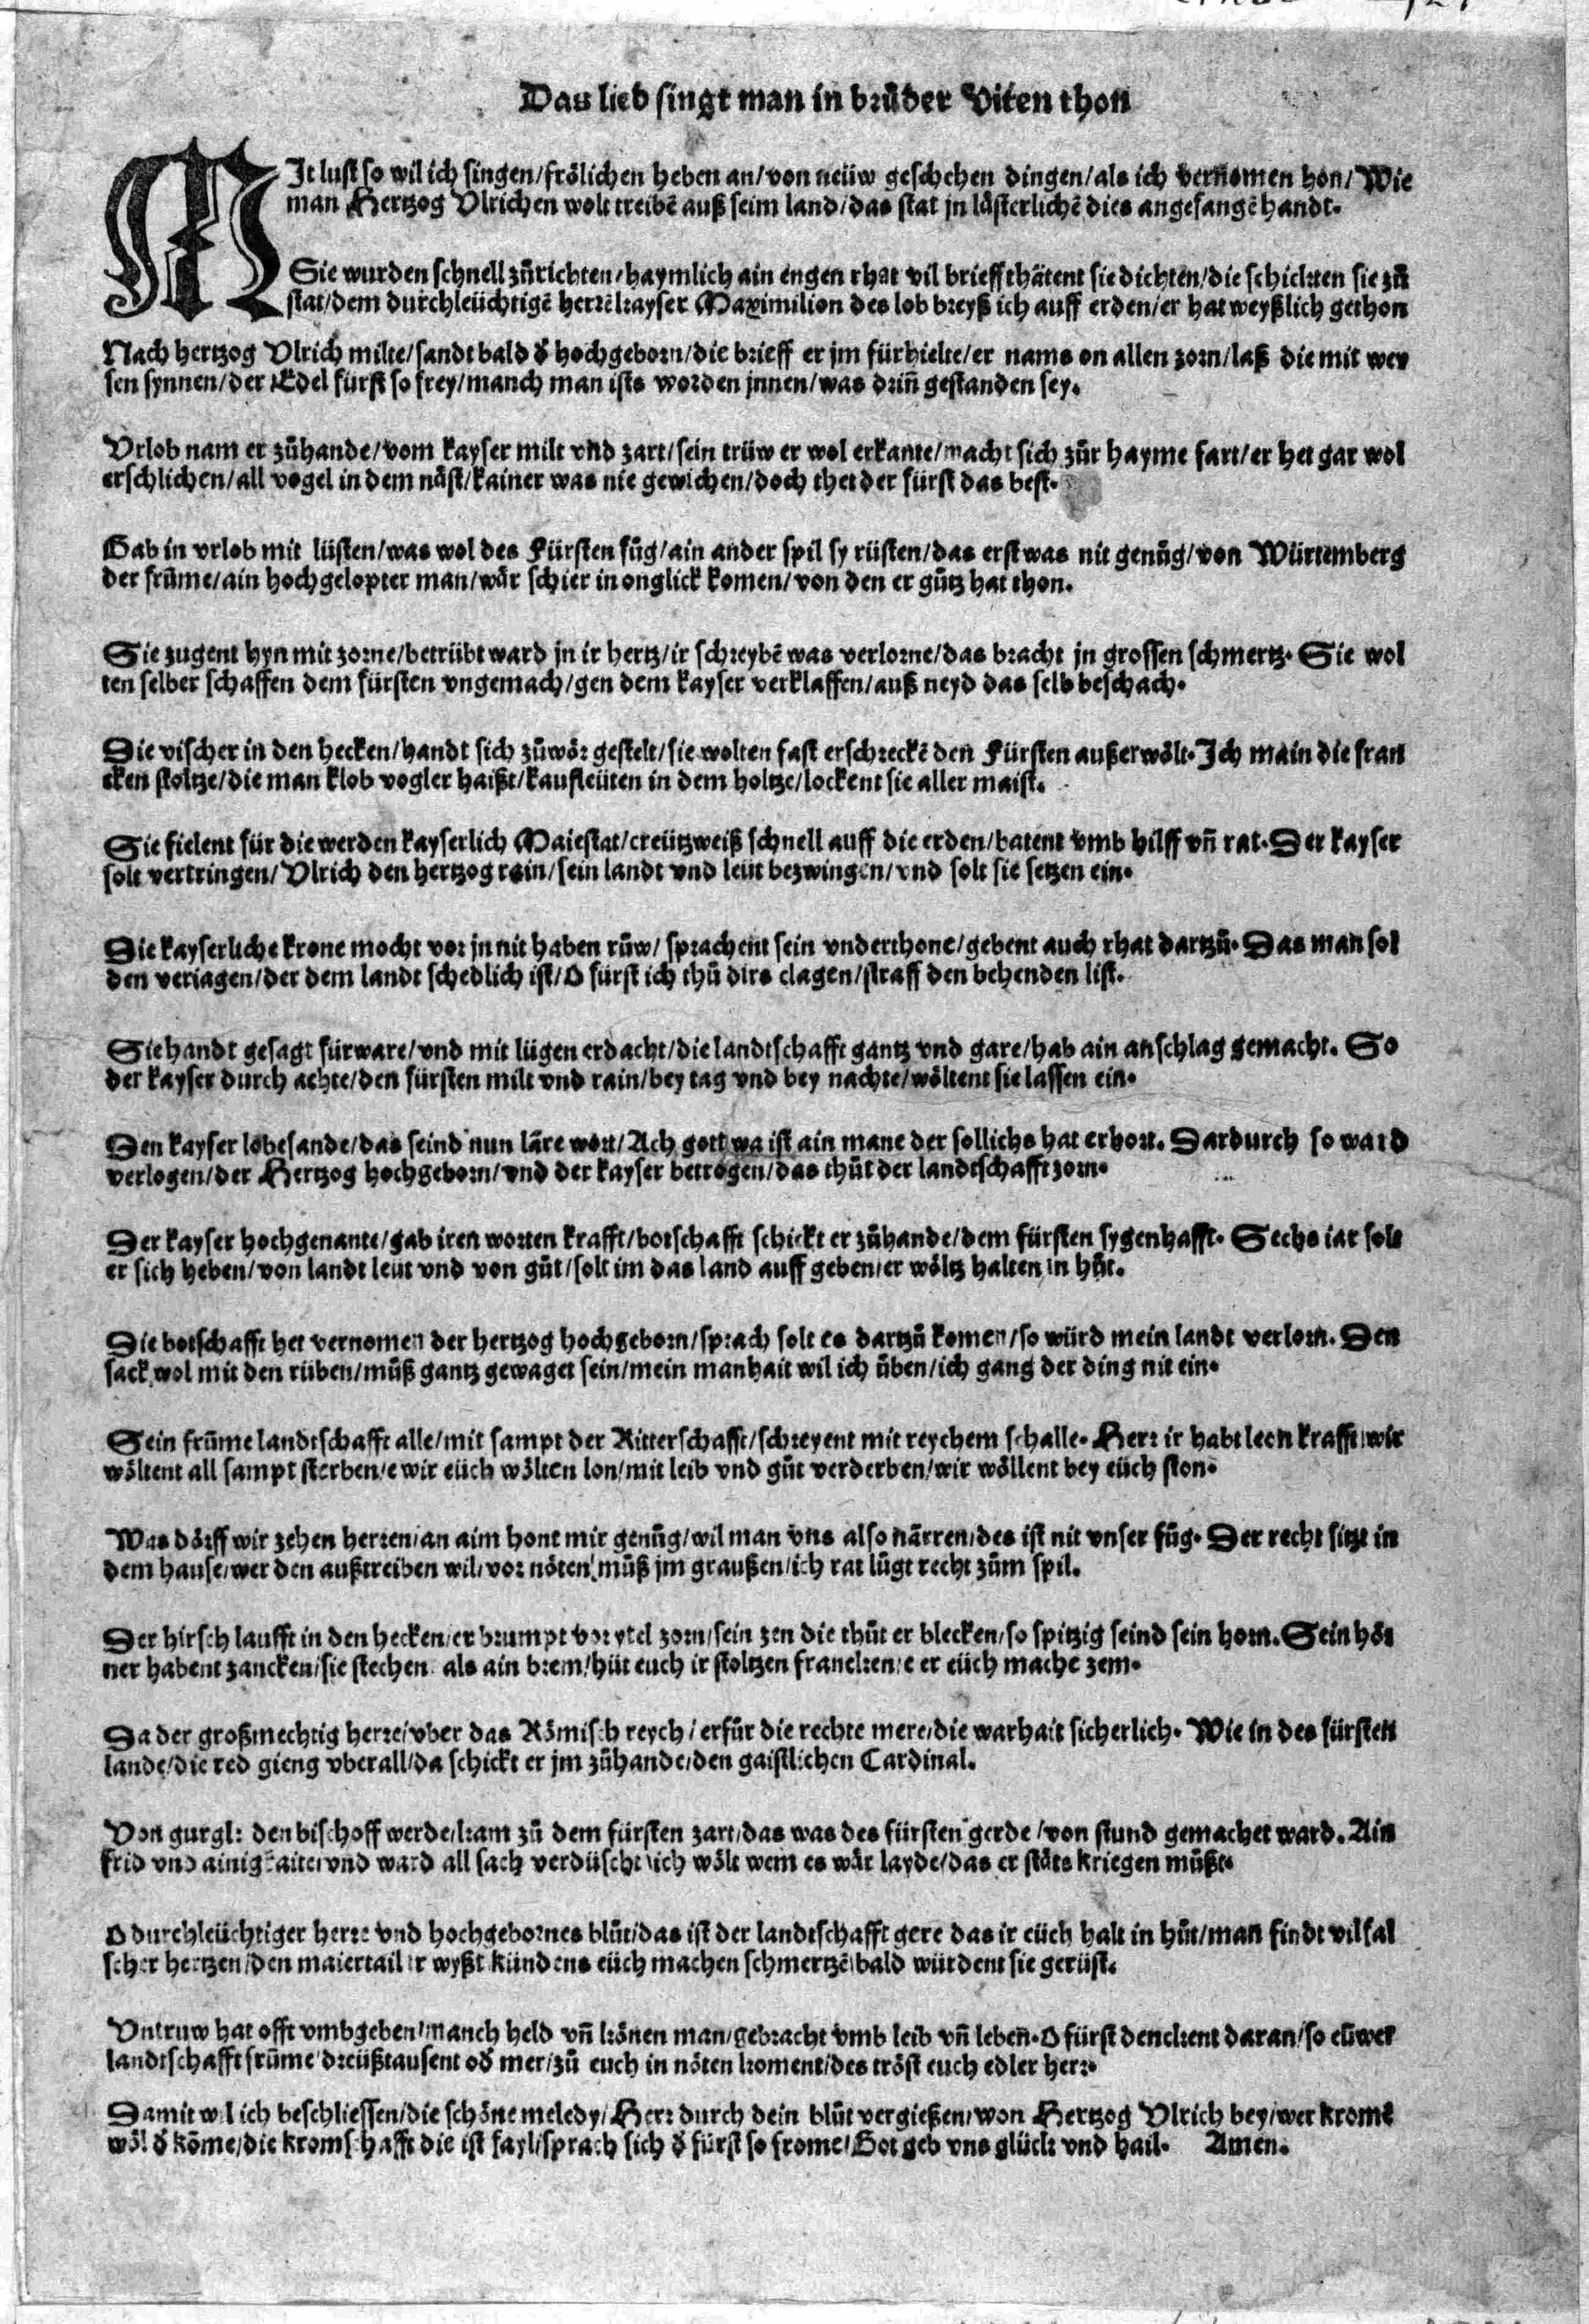 Das lied singt man in brůder Viten thon
MIt lust so wil ich singen/frölichen heben an/von neüw geschehen dingen/als ich vernomen hon/Wie
man Hertzog Vlrichen wolt treibē auß seim land/das stat jn lästerlichē dies angefangē handt.
Sie wurden schnell zůrichten/haymlich ain engen rhat vil brieff thätent sie dichten/die schickten sie zů
stat/dem durchleüchtigē herrē kayser Maximilion des lob breyß ich auff erden/er hat weyßlich gethon
Nach hertzog Vlrich milte/sandt bald d̄ hochgeborn/die brieff er jm fürhielte/er nams on allen zorn/laß die mit wey
sen synnen/der Edel fürst so frey/manch man ists worden jnnen/was drin̄ gestanden sey.
Vrlob nam er zůhande/vom kayser milt vnd zart/sein trüw er wol erkante/macht sich zůr hayme fart/er het gar wol
erschlichen/all vogel in dem näst/kainer was nie gewichen/doch thet der fürst das best.
Gab in vrlob mit lüsten/was wol des Fürsten fůg/ain ander spil sy rüsten/das erst was nit genůg/von Würtemberg
der frūme/ain hochgelopter man/wär schier in onglick komen/von den er gůtz hat thon.
Sie zugent hyn mit zorne/betrübt ward jn ir hertz/ir schreybē was verlorne/das bracht jn grossen schmertz. Sie wol
ten selber schaffen dem fürsten vngemach/gen dem kayser verklaffen/auß neyd das selb beschach.
Die vischer in den hecken/handt sich zůwör gestelt/sie wolten fast erschreckē den Fürsten außerwölt. Ich main die fran
cken stoltze/die man klob vogler haißt/kaufleüten in dem holtze/lockent sie aller maist.
Sie fielent für die werden kayserlich Maiestat/creützweiß schnell auff die erden/batent vmb hilff vn̄ rat. Der kayser
solt vertringen/Vlrich den hertzog rain/sein landt vnd leüt bezwingen/vnd solt sie setzen ein.
Die kayserliche krone mocht vor jn nit haben růw/sprachent sein vnderthone/gebent auch rhat dartzů. Das man sol
den veriagen/der dem landt schedlich ist/O fürst ich thů dirs clagen/straff den behenden list.
Sie handt gesagt fürware/vnd mit lügen erdacht/die landtschafft gantz vnd gare/hab ain anschlag gemacht. So
der kayser durch achte/den fürsten milt vnd rain/bey tag vnd bey nachte/wöltent sie lassen ein.
Den kayser lobesande/das seind nun läre wort/Ach gott wa ist ain mane der sollichs hat erhort. Dardurch so ward
verlogen/der Hertzog hochgeborn/vnd der kayser betrogen/das thůt der landtschafft zorn.
Der kayser hochgenante/gab iren worten krafft/botschafft schickt er zůhande/dem fürsten sygenhafft. Sechs iar solt
er sich heben/von landt leüt vnd von gůt/solt im das land auff geben/er wöltz halten in hůt.
Die botschafft het vernomen der hertzog hochgeborn/sprach solt es dartzů komen/so würd mein landt verlorn. Den
sack wol mit den rüben/můß gantz gewaget sein/mein manhait wil ich üben/ich gang der ding nit ein.
Sein frūme landtschafft alle/mit sampt der Ritterschafft/schreyent mit reychem schalle. Herr ir habt leon krafft/wir
wöltent all sampt sterben/e wir eüch wölten lon/mit leib vnd gůt verderben/wir wöllent bey eüch ston.
Was dörff wir zehen herren/an aim hont mir genůg/wil man vns also närren/des ist nit vnser fůg. Der recht sitzt in
dem hause/wer den außtreiben wil/vor nöten můß jm graußen/ich rat lůgt recht zům spil.
Der hirsch laufft in den hecken/er brumpt vor ytel zorn/sein zen die thůt er blecken/so spitzig seind sein horn. Sein hör
ner habent zancken/sie stechen als ain brem/hüt euch ir stoltzen francken/e er eüch mache zem.
Da der großmechtig herre/vber das Römisch reych/erfůr die rechte mere/die warhait sicherlich. Wie in des fürsten
lande/die red gieng vberall/da schickt er jm zůhande/den gaistlichen Cardinal.
Von gurgk den bischoff werde/kam zů dem fürsten zart/das was des fürsten gerde/von stund gemachet ward. Ain
frid vnd ainigkaite/vnd ward all sach verdüscht/ich wölt wem es wär layde/das er stäts kriegen můßt.
O durchleüchtiger herre vnd hochgebornes blůt/das ist der landtschafft gere das ir eüch halt in hůt/man findt vil fal
scher hertzen/den maiertail ir wyßt kündens eüch machen schmertzē/bald würdent sie gerüst.
Vntruw hat offt vmbgeben/manch held vn̄ könen man/gebracht vmb leib vn̄ leben. O fürst denckent daran/so eüwer
landtschafft frūme/dreüßtausent od̄ mer/zů euch in nöten koment/des tröst euch edler herr.
Damit wil ich beschliessen/die schöne meledy/Herr durch dein blůt vergießen/won Hertzog Vlrich bey/wer kromē
wöl d̄ kōme/die kromschafft die ist fayl/sprach sich d̄ fürst so frome/Got geb vns glück vnd hail. Amen.